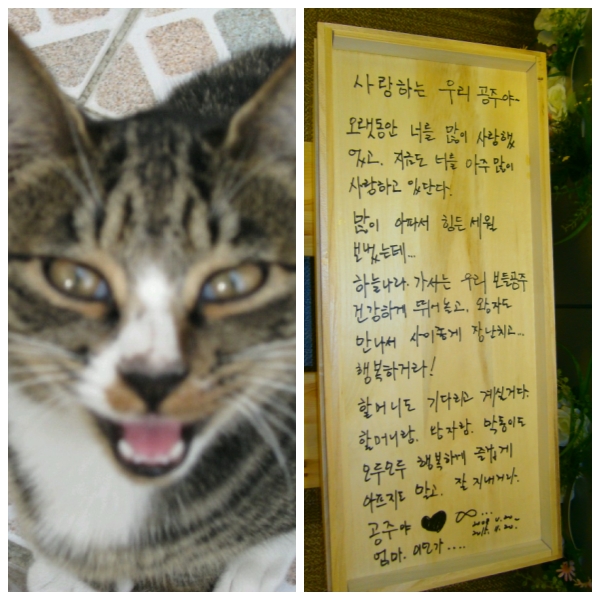 사랑하는 우리 공주야~
오랫동안 너를 많이 사랑했
었고, 지금도 너를 아주 많이
사랑하고 있단다.
많이 아파서 힘든 세월
보냈는데...
하늘나라 가서는 우리 보들공주
건강하게 뛰어놀고, 왕자도
만나서 사이좋게 장난치고...
행복하거라!
할머니도 기다리고 계실거다.
할머니랑, 왕자랑, 막둥이도
모두모두 행복하게 즐겁게
아프지도 말고, 잘 지내거라.
공주야 ♥ ∞...
엄마. 가....